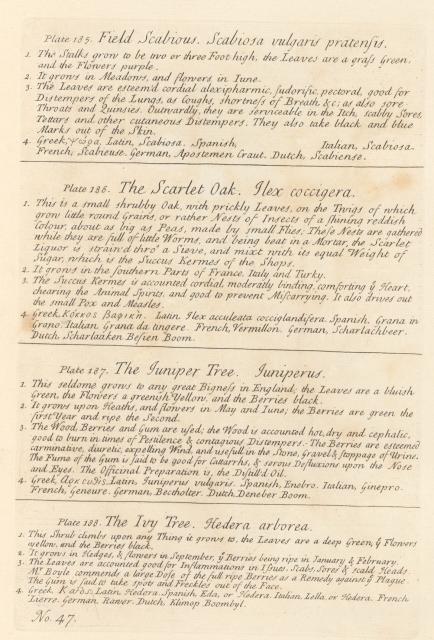 Plate 185. Field Scabious. Scabiosa vulgaris pratensis.
1. The Stalks grow to be two or three Foot high, the Leaves are a grass Green,
and the Flowers purple.
2. It grows in Meadows, and flowers in Iune.
3. The Leaves are esteem'd cordial alexipharmic, sudorific, pectoral, good for
Distempers of the Lungs, as Coughs, shortness of Breath &c; as also sore
Throats and Quinsies. Outwardly, they are serviceable in the Itch, scabby Sores,
Tettars and other cutaneous Distempers. They also take black and blue
Marks out of the Skin.
4. Greek, Latin, Scabiosa. Spanish, Italian, Scabiosa.
French, Scabieuse. German, Apostemen Craut. Dutch, Scabiense.
Plate 186. The Scarlet Oak. Ilex coccigera.
1. This is a small shrubby Oak, with prickly Leaves, on the Twigs of which
grow little round Grains, or rather Nests of Insects of a shining reddish
Colour, about as big as Peas, made by small Flies; These Nests are gathered
while they are full of little Worms, and being beat in a Mortar, the Scarlet
Liquor is strain'd thro' a Sieve, and mixt with its equal Weight of
Sugar, which is the Succus Kermes of the Shops.
2. It grows in the southern Parts of France, Italy and Turky.
3. The Succus Kermes is accounted cordial, moderately binding, comforting ye Heart,
chearing the Animal Spirits, and good to prevent Miscarrying. It also drives out
the small Pox and Measles.
4. Greek, Κόκκος Βαφικὴ. Latin Ilex aculeata cocciglandifera. Spanish, Grana in
Grano. Italian Grana da tingere. French, Vermillon. German, Scharlachbeer.
Dutch, Scharlaaken Besien Boom.
Plate 187. The Juniper Tree. Iuniperus.
1. This seldome grows to any great Bigness in England; the Leaves are a bluish
Green, the Flowers a greenish Yellow, and the Berries black.
2. It grows upon Heaths, and flowers in May and Iune; the Berries are green the
first Year and ripe the Second.
3. The Wood, Berries and Gum are used; the Wood is accounted hot, dry and cephalic,
good to burn in times of Pestilence & contagious Distempers. The Berries are esteemed
carminative, diuretic, expelling Wind, and usefull in the Stone, Gravel & stoppage of Urine.
The Fume of the Gum is said to be good for Catarrhs, & serous Defluxions upon the Nose
and Eyes. The Officinal Preparation is, the Distill'd Oil.
4. Greek, Latin, Juniperus vulgaris. Spanish, Enebro. Italian, Ginepro.
French, Geneure. German, Becholter. Dutch Deneber Boom.
Plate 188. The Ivy Tree. Hedera arborea.
1. This Shrub climbs upon any Thing it grows to, the Leaves are a deep Green, ye Flowers
yellow, and the Berries black.
2. It grows in Hedges, & flowers in September, ye Berries being ripe in January & February.
3. The Leaves are accounted good for Inflammations in Issues, Scabs, Sores & scald Heads.
Mr. Boyle commends a large Dose of the full ripe Berries as a Remedy against ye Plague.
The Gum is said to take spots and Freckles out of the Face.
4. Greek, Latin, Hedera. Spanish, Eda, or Hedera. Italian, Lella, or Hedera. French,
Lierre. German, Dutch, Klimop Boombyl.
No. 47.